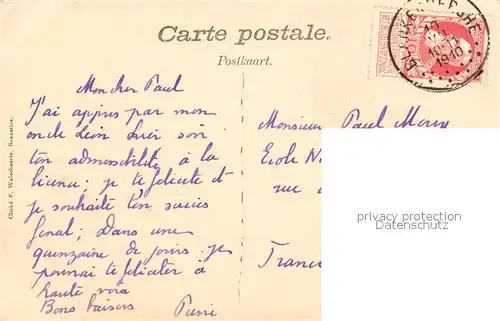 Carte postale.
Postkaart.
BLANKENBERGHE
1910
Mon cher Paul
J'ai appris par mon
oncle Léon hier soir
ton admissibilité à la
licence; je te félicite et
je souhaite ton succès
final; Dans une
quinzaine de jours je
pourrai te féliciter à
haute voix
Bons baisers
Pierre
Monsieur Paul
Ecole N
rue
France
Cliché F. Walschaerts, Bruxelles.
privacy protection
Datenschutz